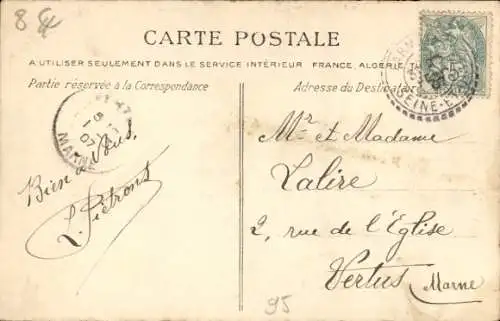 8
CARTE POSTALE
A UTILISER SEULEMENT DANS LE SERVICE INTÉRIEUR FRANCE, ALGÉRIE
Partie réservée à la Correspondance
Adresse du Destinataire
SEINE-E
MARNE
07
Bien à Vous,
Mr et Madame
Lalire
2, rue de l'Église
Vertus (Marne)
95